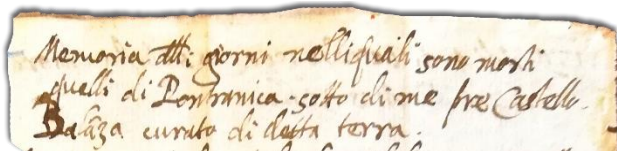 Memoria delli giorni nelliquali sono morti
quelli di Pontranica sotto di me præ Castello
curato di detta terra.